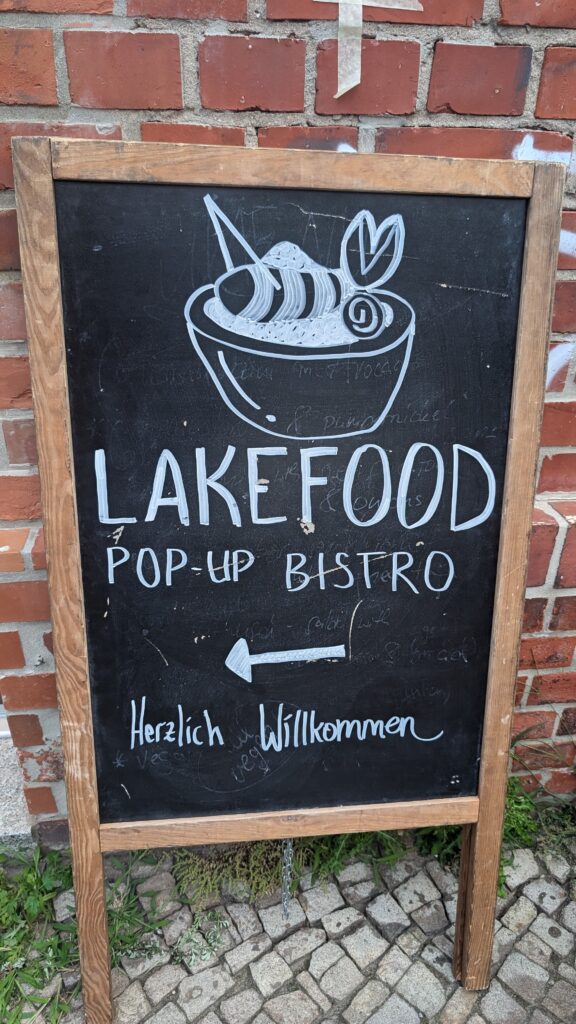 LAKEFOOD
POP-UP BISTRO
Herzlich Willkommen